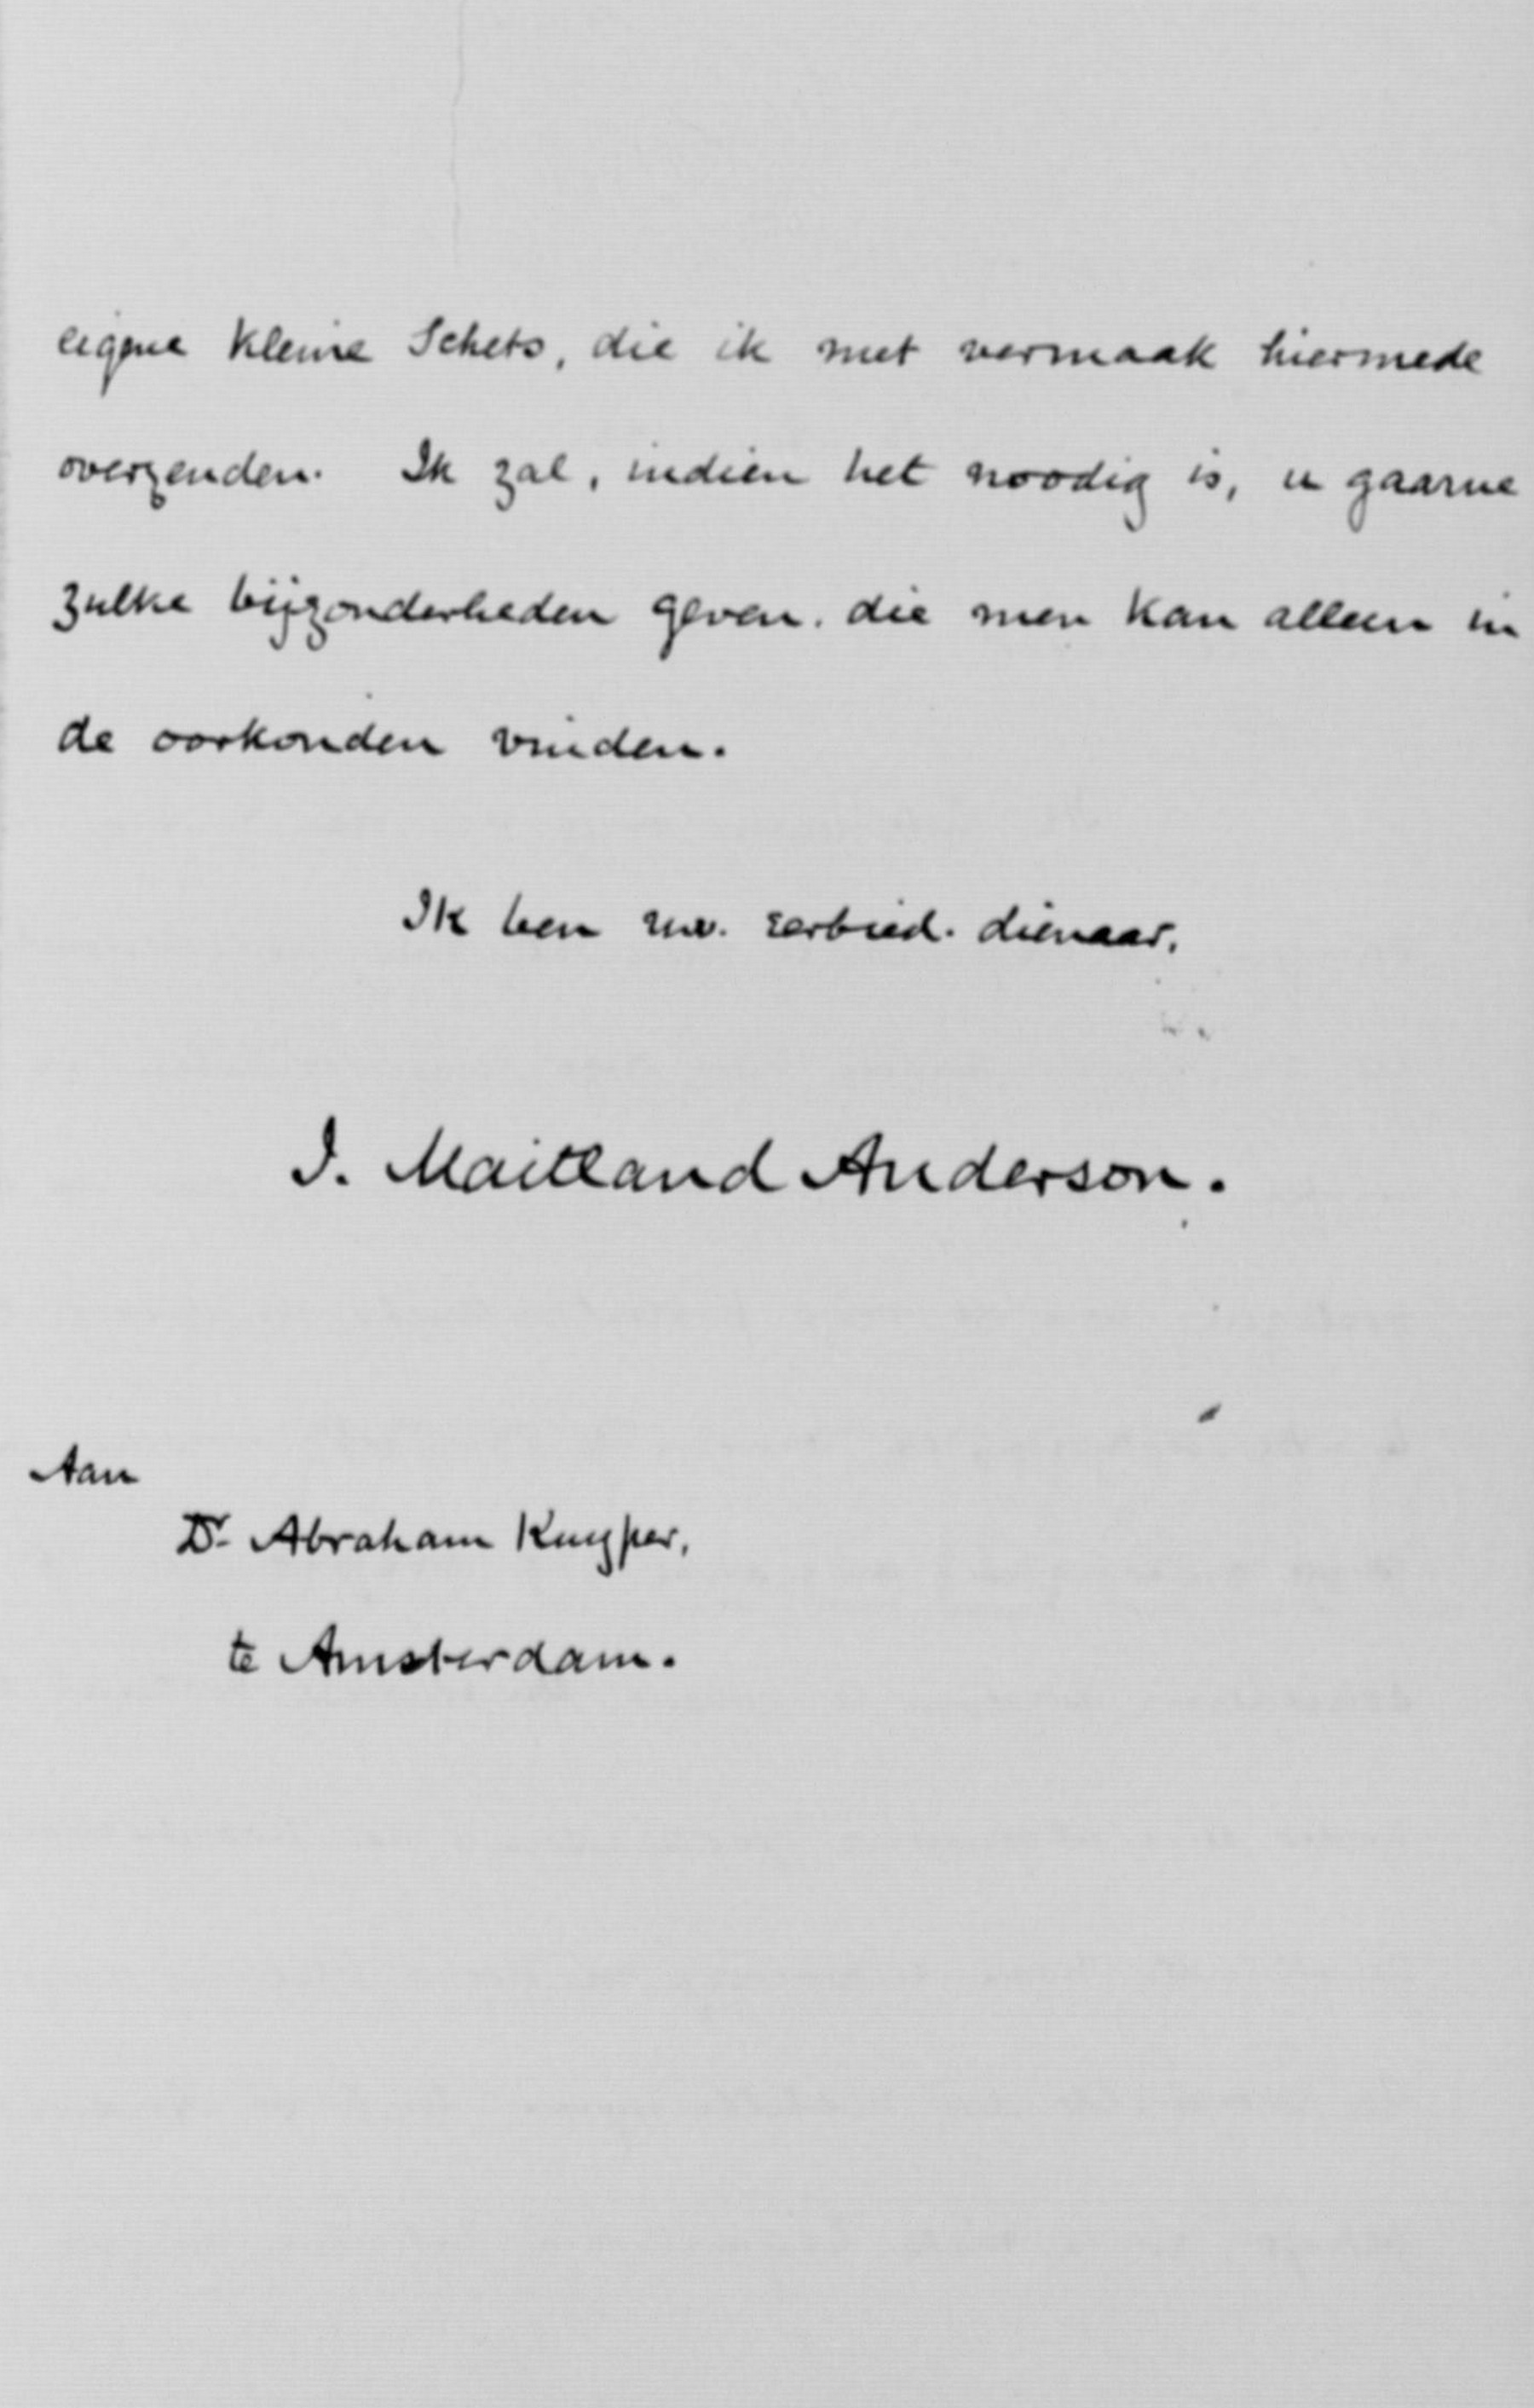 eigene kleine Schets, die ik met vermaak hiermede
overzenden. Ik zal, indien het noodig is, u gaarne
zulke bijzonderheden geven, die men kan alleen in
de oorkonden vinden.
Ik ben uw. eerbied. dienaar,
J. Maitland Anderson.
Aan
Dr. Abraham Kuyper,
te Amsterdam.